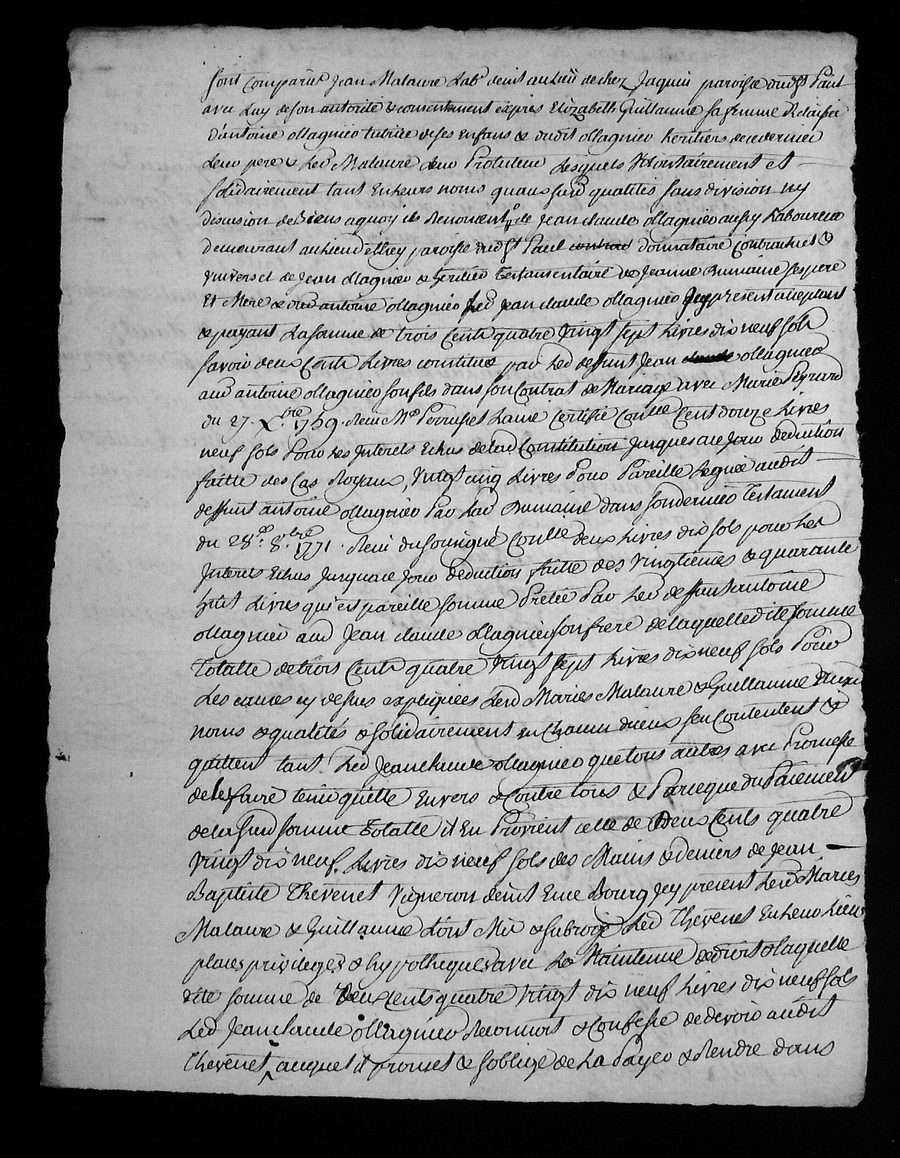 sont Comparûs Jean Malaure Labr demt au lieu de chez Jaquin paroisse dudt St Paul
avec Luy de son autorité & consentement exprès Elizabeth Guillaume sa femme Relaissée
d'antoine ollagnier tutrice de ses Enfans & dudit ollagnier heritiers de ce dernier
Leur pere & Led Malaure Leur Protuteur Lesquels Volontairement et
solidairement tant En Leurs noms quaux susd qualités sans division ny
discution de Biens a quoy ils Renoncent de Jean claude ollagnier aussy Laboureur
demeurant au lieu paroisse dudt St Paul donnataire Contractuel &
Vniversel de Jean ollagnier & heritier testamentaire de Jeanne Dumaine ses pere
Et Mere & dud antoine ollagnier Led Jean claude ollagnier Jcy present aceptant
& payant La somme de trois Cents quatre Vingt sept Livres dix neuf sols
savoir deux Cents Livres constitués par Led deffunt Jean ollagnier
aud antoine ollagnier son fils dans son Contrat de Mariage avec Marie Peyrard
du 27. Xbre 1759. Reçu Me Perrusset Laine Certifié Conlle Cent douze Livres
neuf sols Pour Les Interets Echus de lad Constitution Jusques a ce Jour deduction
faitte des Cas Royaux, Vingt cinq Livres Pour Pareille Leguée audit
deffunt antoine ollagnier Par Lad Dumaine dans son dernier Testament
du 28e 8bre 1771. Reçu du soussigné Conlle deux Livres dix sols pour Les
Interets Echus Jusqua ce Jour deduction faitte des Vingtiemes & quarante
huit Livres qui est pareille somme Pretée Par Led deffunt antoine
ollagnier aud Jean claude ollagnier son frere de laquelle dite somme
Totalle de trois Cents quatre Vingt sept Livres dix neuf sols Pour
Les causes cy dessus expliquées Led Mariés Malaure & Guillaume
noms & qualités & solidairement un Chacun d'ieux sen Contentent &
quittent tant Led Jean claude ollagnier que tous autres avec Promesse
de le faire tenir quitte Envers & Contre tous & Parceque du Paiement
de la susd somme Totalle il En Provient celle de Deux Cents quatre
Vingt dix neuf Livres dix neuf sols des Mains & deniers de Jean
Baptiste Thevenet Vigneron demt En ce Bourg Jcy present Led Mariés
Malaure & Guillaume L'ont Mis & subrogé Led Thevenet En Leur Lieu
places privileges & hypotheques avec La Maintenue de droit de laquelle
dite somme de Deux cents quatre Vingt dix neuf Livres dix neuf sols
Led Jean claude ollagnier Reconnoit & Confesse de devoir audit
Thevenet, auquel il promet & soblige de La Payer & Rendre dans